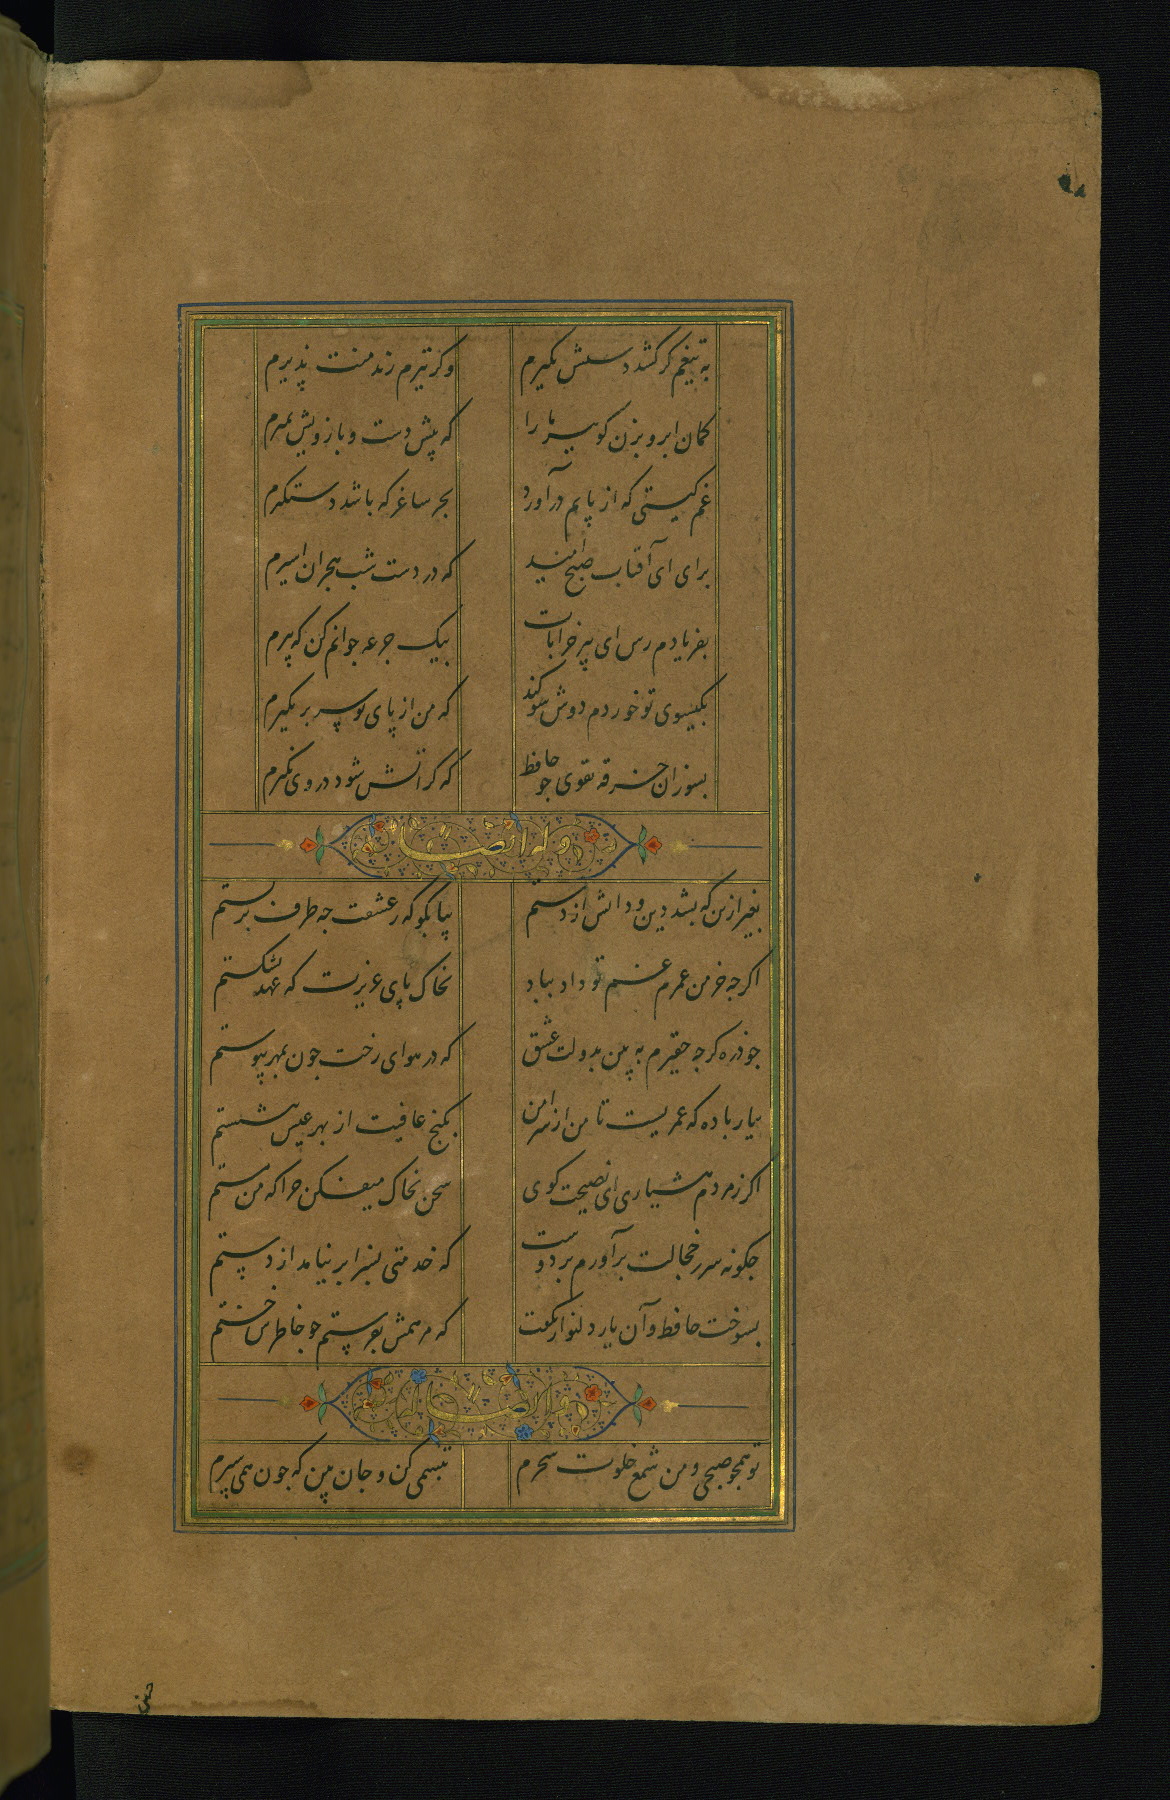 به تیغم کر کشد دستش نکیرم وکر تیرم زند منت پذیرم
کمان ابرو بزن کو تیر ما را که پیش دست و بازویش بمیرم
غم کیتی که از پایم درآورد بجز ساغر که باشد دستکیرم
برای ای آفتاب صبح امید که در دست شب هجران اسیرم
بفریادم رس ای پیر خرابات بیک جرعه جوانم کن که پیرم
بکیسوی تو خوردم دوش سوکند که من از پای تو سر بر نکیرم
بسوزان خرقه تقوی جو حافظ که کر آتش شود در وی نکیرم
وله ایضا
بغیر از ین که بشد دین و دانش از دستم بیا بکو که زعشقت جه طرف بربستم
اکرجه خرمن عمرم غم تو داد بباد بخاک پای عزیزت که عهد نشکستم
جو ذره کرجه حقیرم به بین بدولت عشق که در هوای رخت جون بمهر پیوستم
بیار باده که عمریست تا من از سر امن بکنج عافیت از بهر عیش ننشستم
اکر زمردم هشیاری ای نصیحت کوی سخن بخاک میفکن جرا که من مستم
جکونه سر زخجالت برآورم بر دوست که خدمتی بسزا بر نیامد از دستم
بسوخت حافظ و آن یار دلنواز نکفت که مرهمش بفرستم جو خاطرش خستم
وله ایضا
تو همجو صبحی و من شمع خلوت سحرم تبسمی کن و جان بین که جون همی سپرم